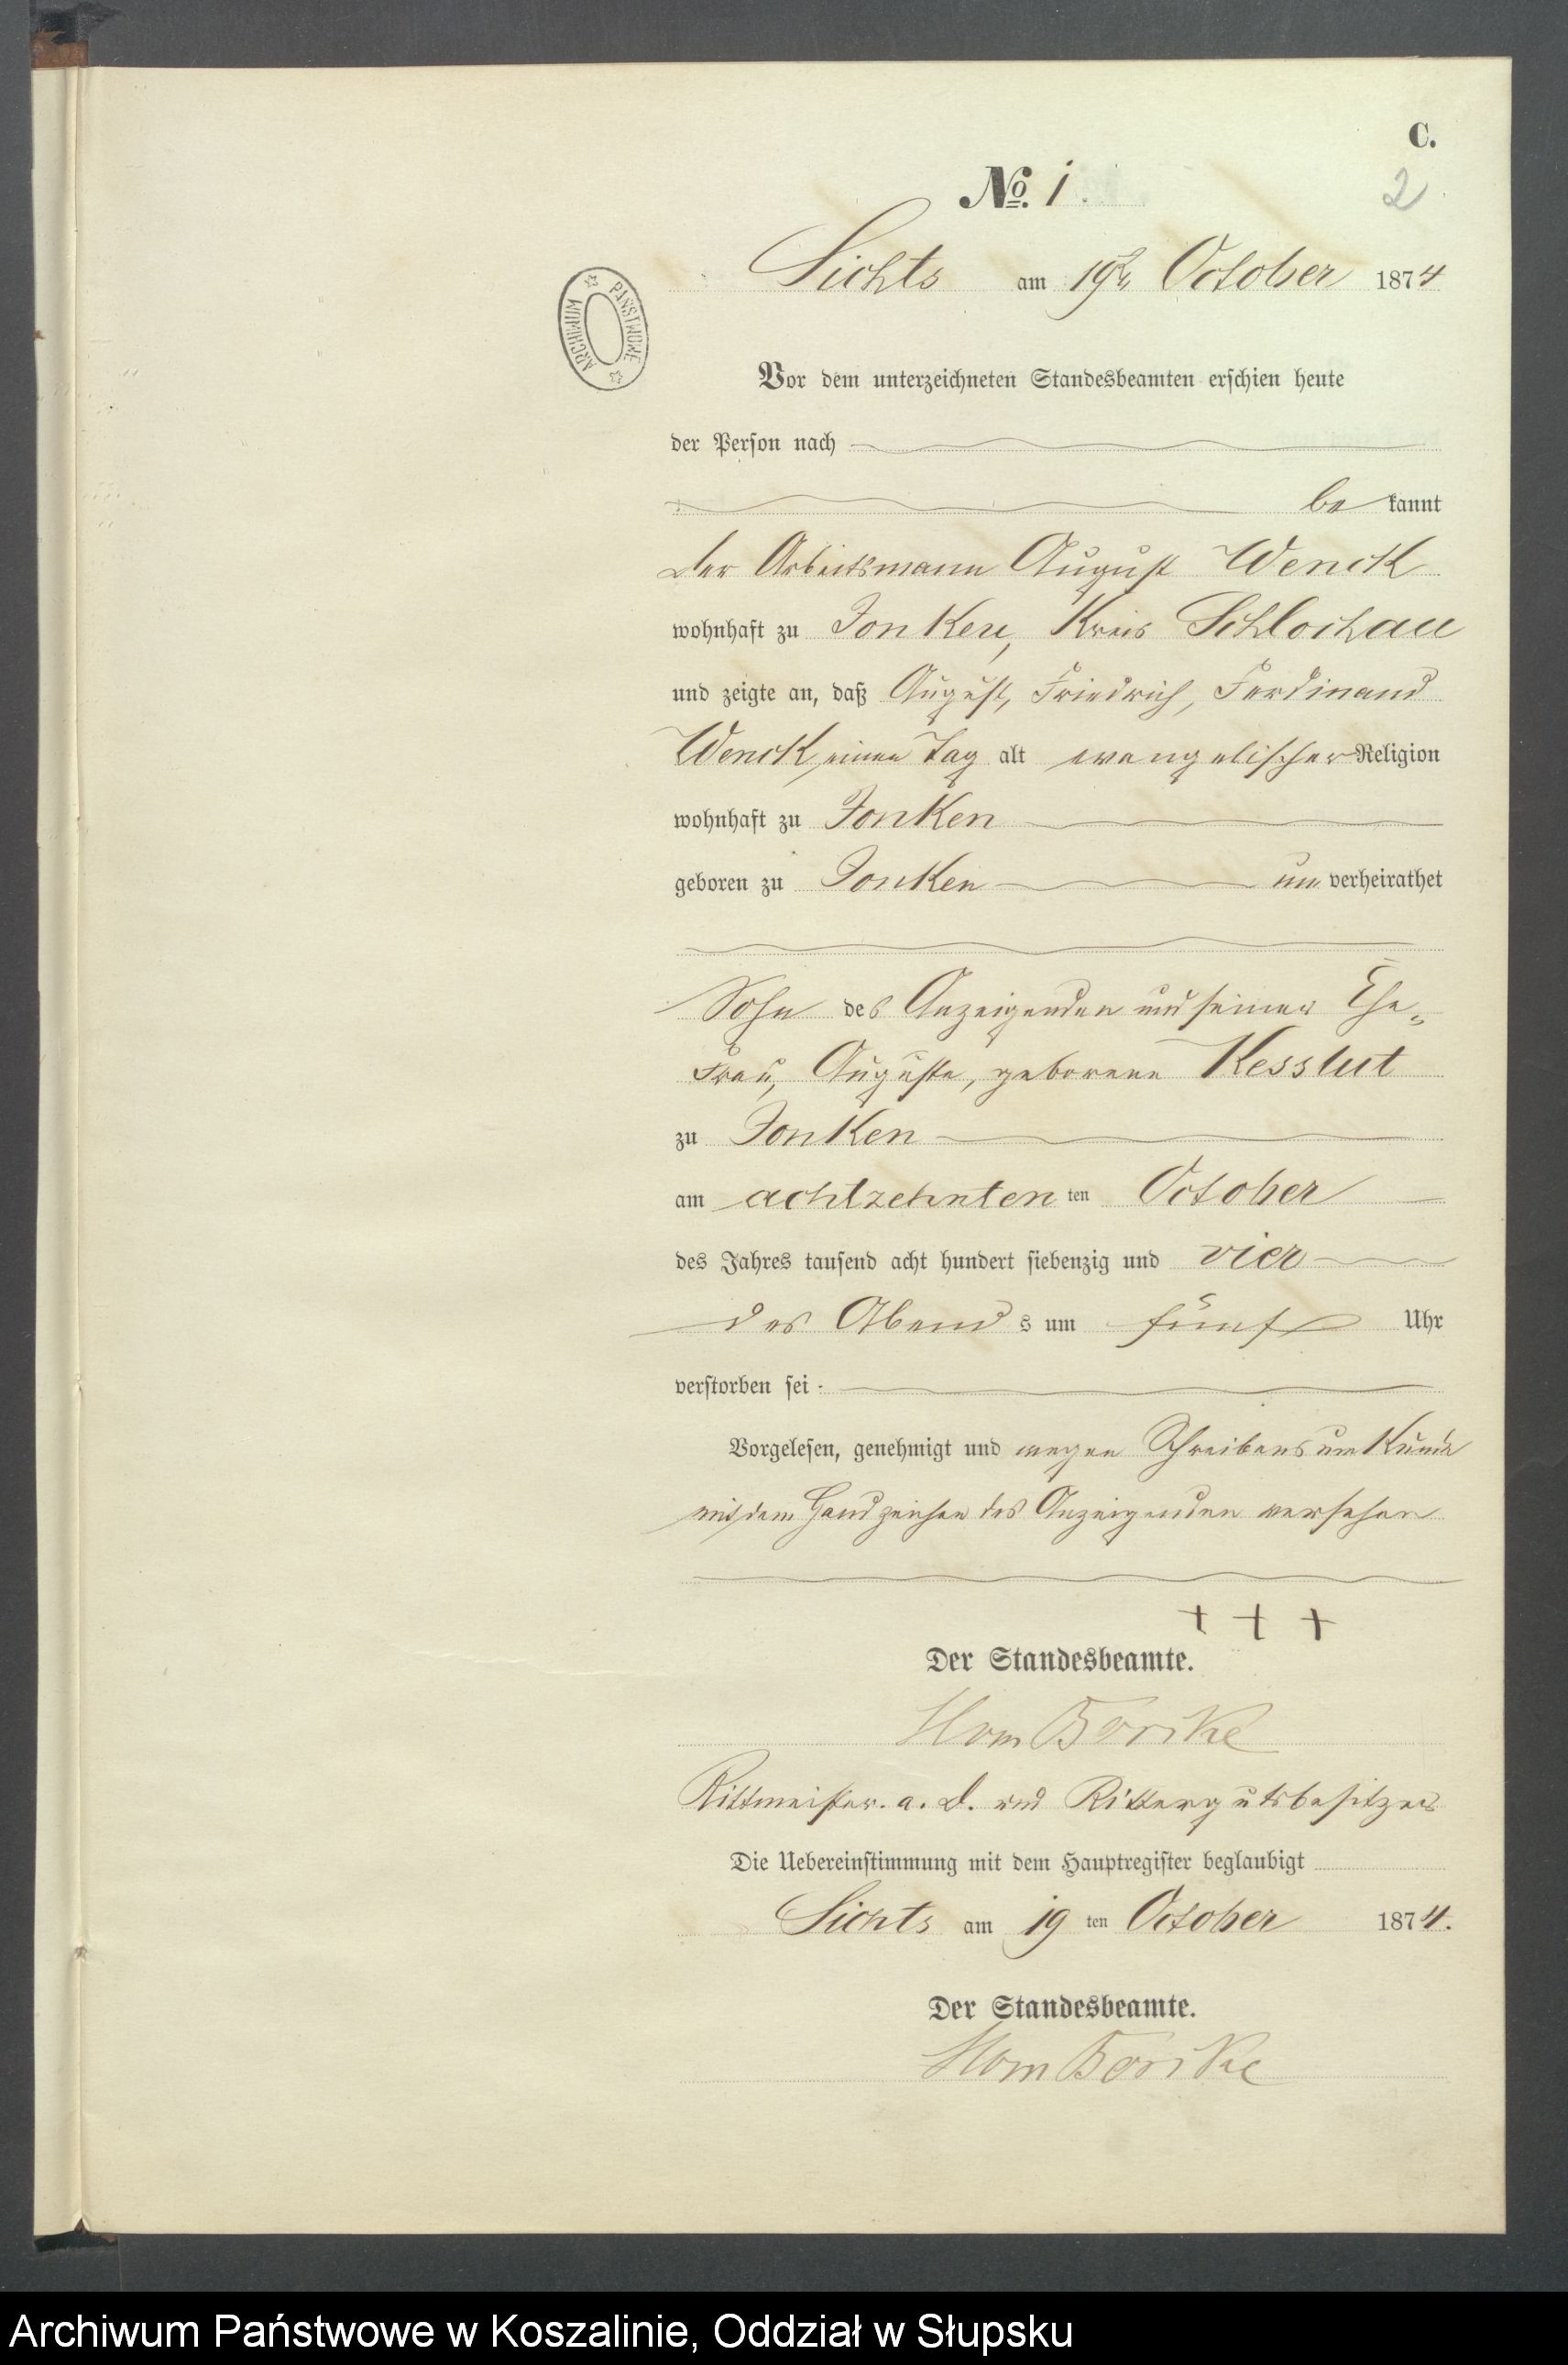 C.
No. 1.
2
Sichts am 19te October 1874
ARCHIWUM PAŃSTWOWE
Vor dem unterzeichneten Standesbeamten erschien heute
der Person nach
be kannt
der Arbeitsmann August Wenck
wohnhaft zu Jonken, Kreis Schlochau
und zeigte an, daß August, Friedrich, Ferdinand
Wenck, einen Tag alt evangelischer Religion
wohnhaft zu Jonken
geboren zu Jonken un verheirathet
Sohn des Anzeigenden und seiner Ehe-
Frau, Auguste, geborene
zu Jonken
am achtzehnten ten October
des Jahres tausend acht hundert siebenzig und vier
des Abend s um fünf Uhr
verstorben sei.
Vorgelesen, genehmigt und wegen Schreibensunkunde
mit dem Handzeichen des Anzeigenden versehen
+ + +
Der Standesbeamte.
Rittmeister a. D. und Rittergutsbesitzer
Die Uebereinstimmung mit dem Hauptregister beglaubigt
Sichts am 19 ten October 1874.
Der Standesbeamte.
Archiwum Państwowe w Koszalinie, Oddział w Słupsku